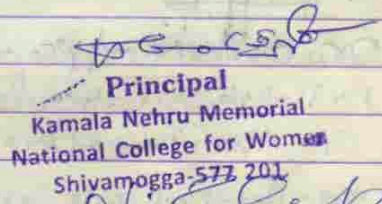 Principal
Kamala Nehru Memorial
National College for Women
Shivamogga-577 201